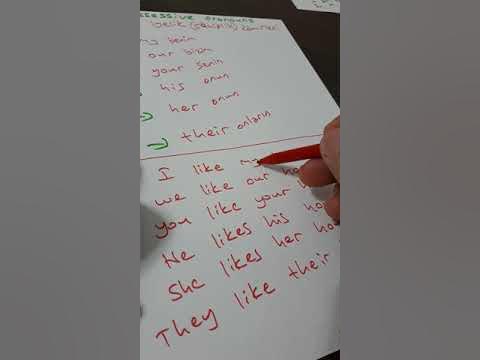 possessive pronouns
my benim
our bizim
your senin
his onun
her onun
their onların
I like my
we like our ho
you like your h
He likes his ho
She likes her ho
They like their